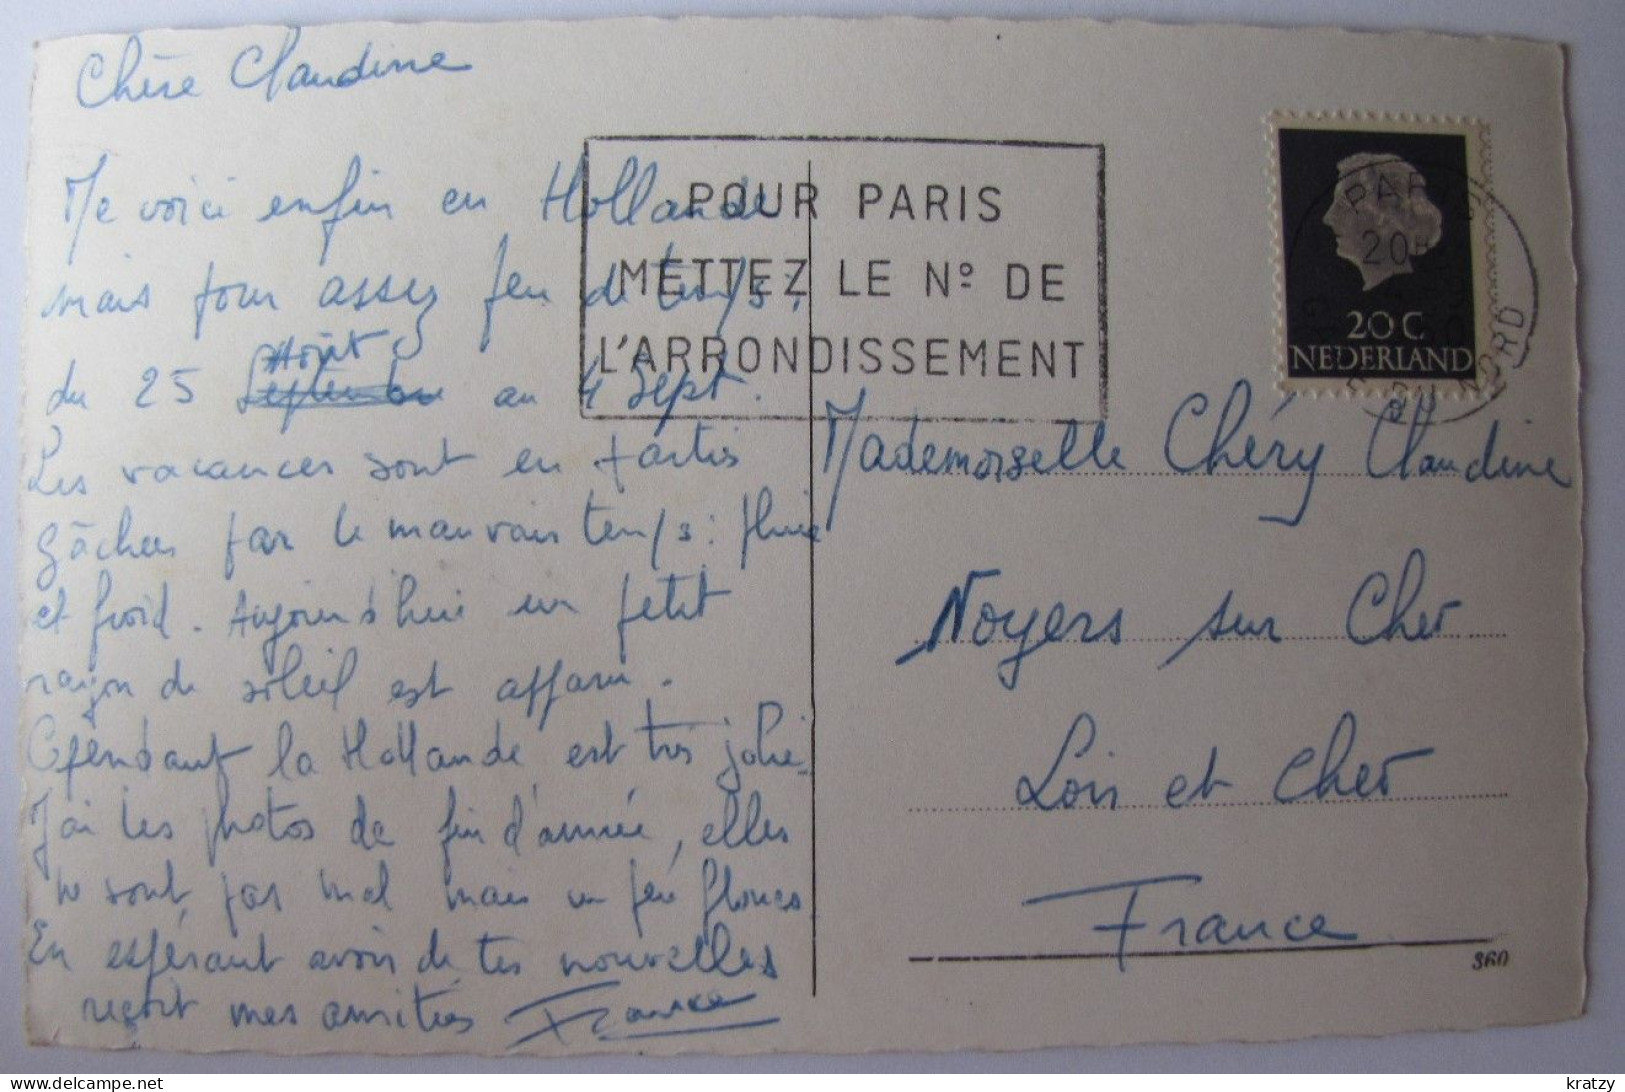 Chère Claudine
Me voici enfin en Hollande
mais pour assez peu de temps :
Août
du 25 Septembre au 4 Sept.
Les vacances sont en parties
gâchées par le mauvais temps : pluie
et froid. Aujourd'hui un petit
rayon de soleil est apparu.
Cependant la Hollande est très jolie.
J'ai les photos de fin d'année, elles
ne sont pas mal mais un peu floues
En espérant avoir de tes nouvelles
reçoit mes amitiés France
POUR PARIS
METTEZ LE No DE
L'ARRONDISSEMENT
PARIS
20H
NORD
20 C
NEDERLAND
Mademoiselle Chéry Claudine
Noyers sur Cher
Loir et Cher
France
360
kratzy